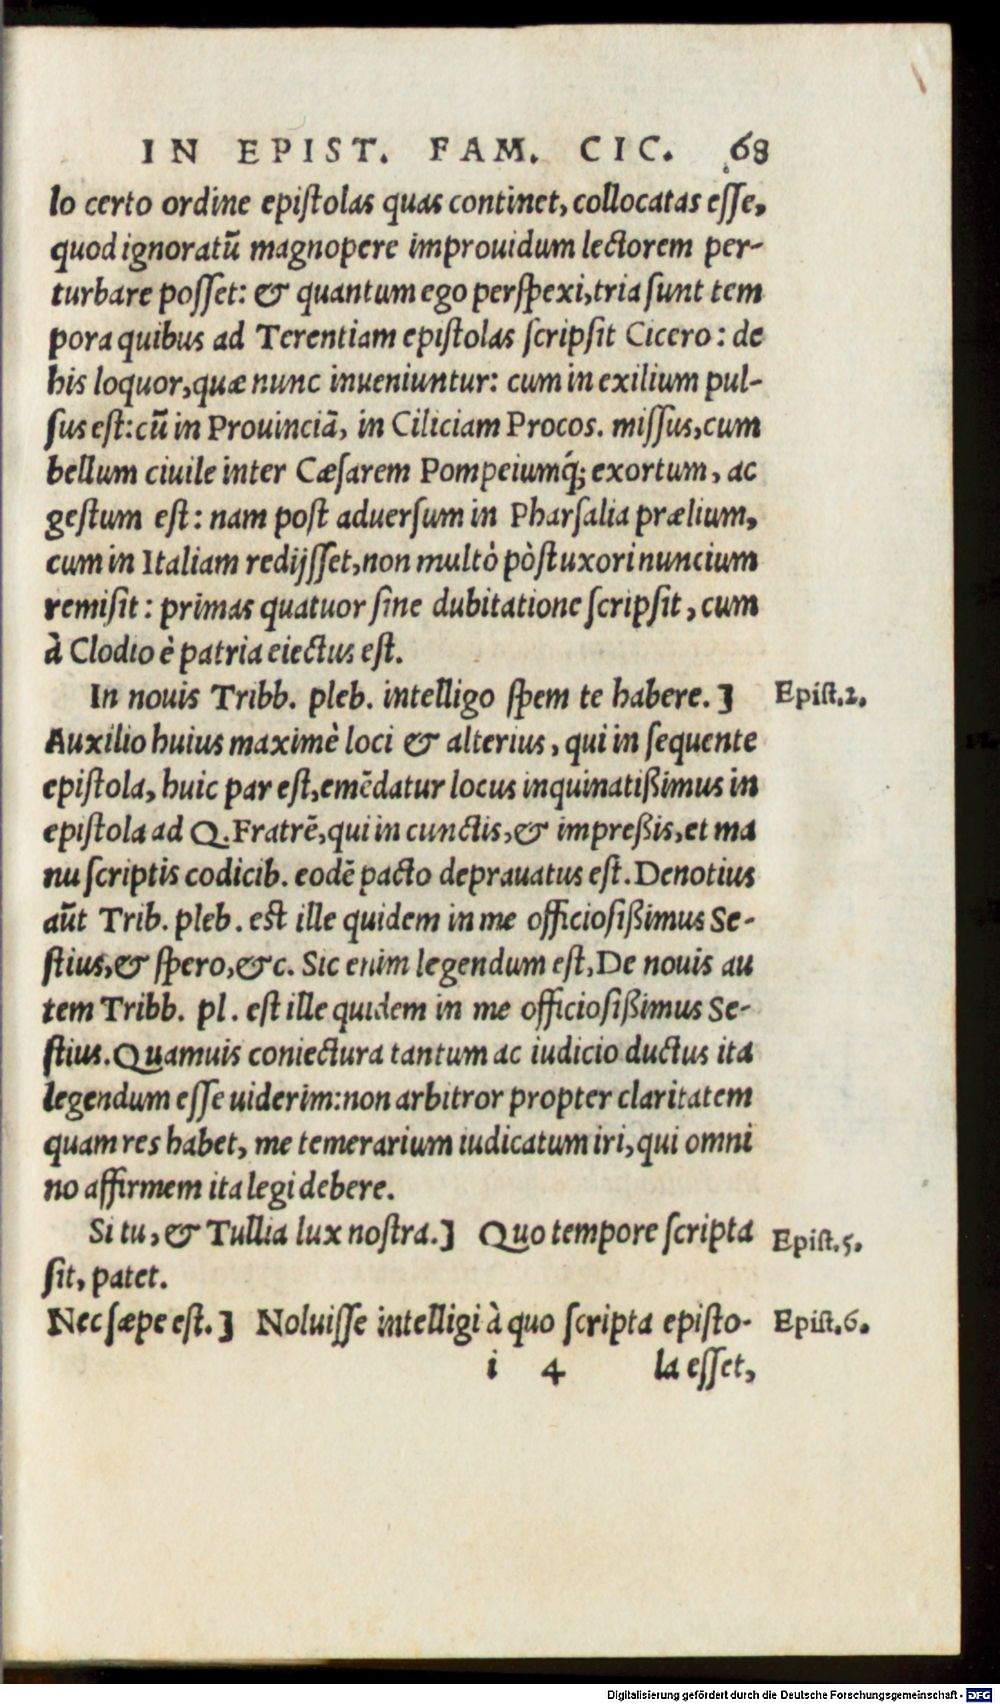 IN EPIST. FAM. CIC. 68
lo certo ordine epistolas quas continet, collocatas esse,
quod ignoratũ magnopere improuidum lectorem per-
turbare posset: & quantum ego perspexi, tria sunt tem
pora quibus ad Terentiam epistolas scripsit Cicero: de
his loquor, quæ nunc inueniuntur: cum in exilium pul-
sus est: cũ in Prouinciã, in Ciliciam Procos. missus, cum
bellum ciuile inter Cæsarem Pompeiumq́; exortum, ac
gestum est: nam post aduersum in Pharsalia prælium,
cum in Italiam redijsset, non multò pòst uxori nuncium
remisit: primas quatuor sine dubitatione scripsit, cum
à Clodio è patria eiectus est.
In nouis Tribb. pleb. intelligo spem te habere.] Epist.2.
Auxilio huius maximè loci & alterius, qui in sequente
epistola, huic par est, emẽdatur locus inquinatißimus in
epistola ad Q. Fratrẽ, qui in cunctis, & impreßis, et ma
nu scriptis codicib. eodẽ pacto deprauatus est. Denotius
aũt Trib. pleb. est ille quidem in me officiosißimus Se-
stius, & spero, &c. Sic enim legendum est, De nouis au
tem Tribb. pl. est ille quidem in me officiosißimus Se-
stius. Quamuis coniectura tantum ac iudicio ductus ita
legendum esse uiderim: non arbitror propter claritatem
quam res habet, me temerarium iudicatum iri, qui omni
no affirmem ita legi debere.
Si tu, & Tullia lux nostra.] Quo tempore scripta Epist.5.
sit, patet.
Nec sæpe est.] Noluisse intelligi à quo scripta episto- Epist.6.
i 4 la esset,
Digitalisierung gefördert durch die Deutsche Forschungsgemeinschaft - DFG